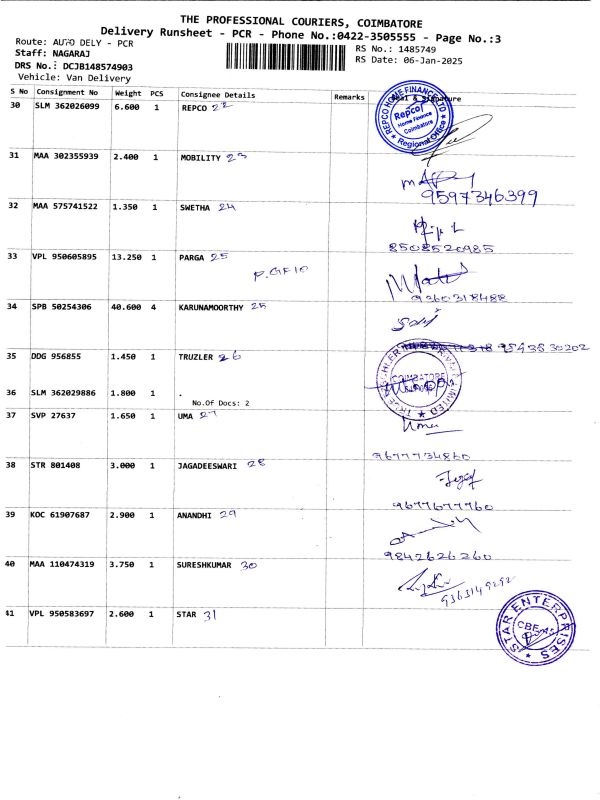 THE PROFESSIONAL COURIERS, COIMBATORE
Delivery Runsheet - PCR - Phone No.:0422-3505555 - Page No.:3
Route: AUTO DELY - PCR
RS No.: 1485749
Staff: NAGARAJ
RS Date: 06-Jan-2025
DRS No.: DCJB148574903
Vehicle: Van Delivery
S No Consignment No Weight PCS Consignee Details Remarks Seal & Signature
30 SLM 362026099 6.600 1 REPCO 22
REPCO HOME FINANCE LTD
Repco
Home Finance
Coimbatore
Regional Office
31 MAA 302355939 2.400 1 MOBILITY 23
9597346399
32 MAA 575741522 1.350 1 SWETHA 24
8508520985
33 VPL 950605895 13.250 1 PARGA 25
P.GF10
9360318488
34 SPB 50254306 40.600 4 KARUNAMOORTHY 25
35 DDG 956855 1.450 1 TRUZLER 26
COIMBATORE
36 SLM 362029886 1.800 1 .
No.Of Docs: 2
37 SVP 27637 1.650 1 UMA 27
Uma
9677734860
38 STR 801408 3.000 1 JAGADEESWARI 28
9677677760
39 KOC 61907687 2.900 1 ANANDHI 29
9842626260
40 MAA 110474319 3.750 1 SURESHKUMAR 30
9363149292
41 VPL 950583697 2.600 1 STAR 31
STAR ENTERPRISES